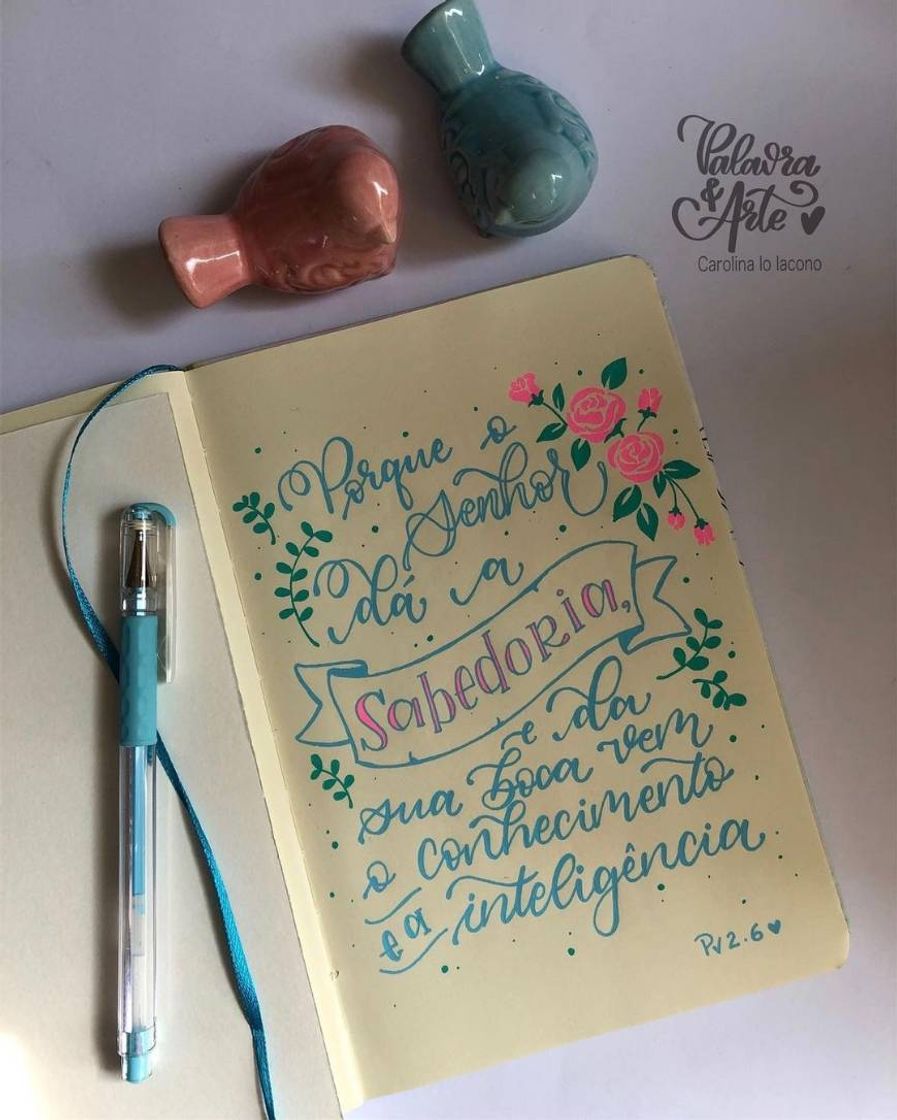 Palavra
& Arte
Carolina lo Iacono
Porque o
Senhor
dá a
Sabedoria,
e da
sua boca vem
o conhecimento
e a inteligência
Pv 2.6